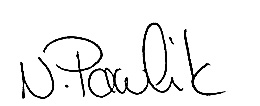 N. Pawlik